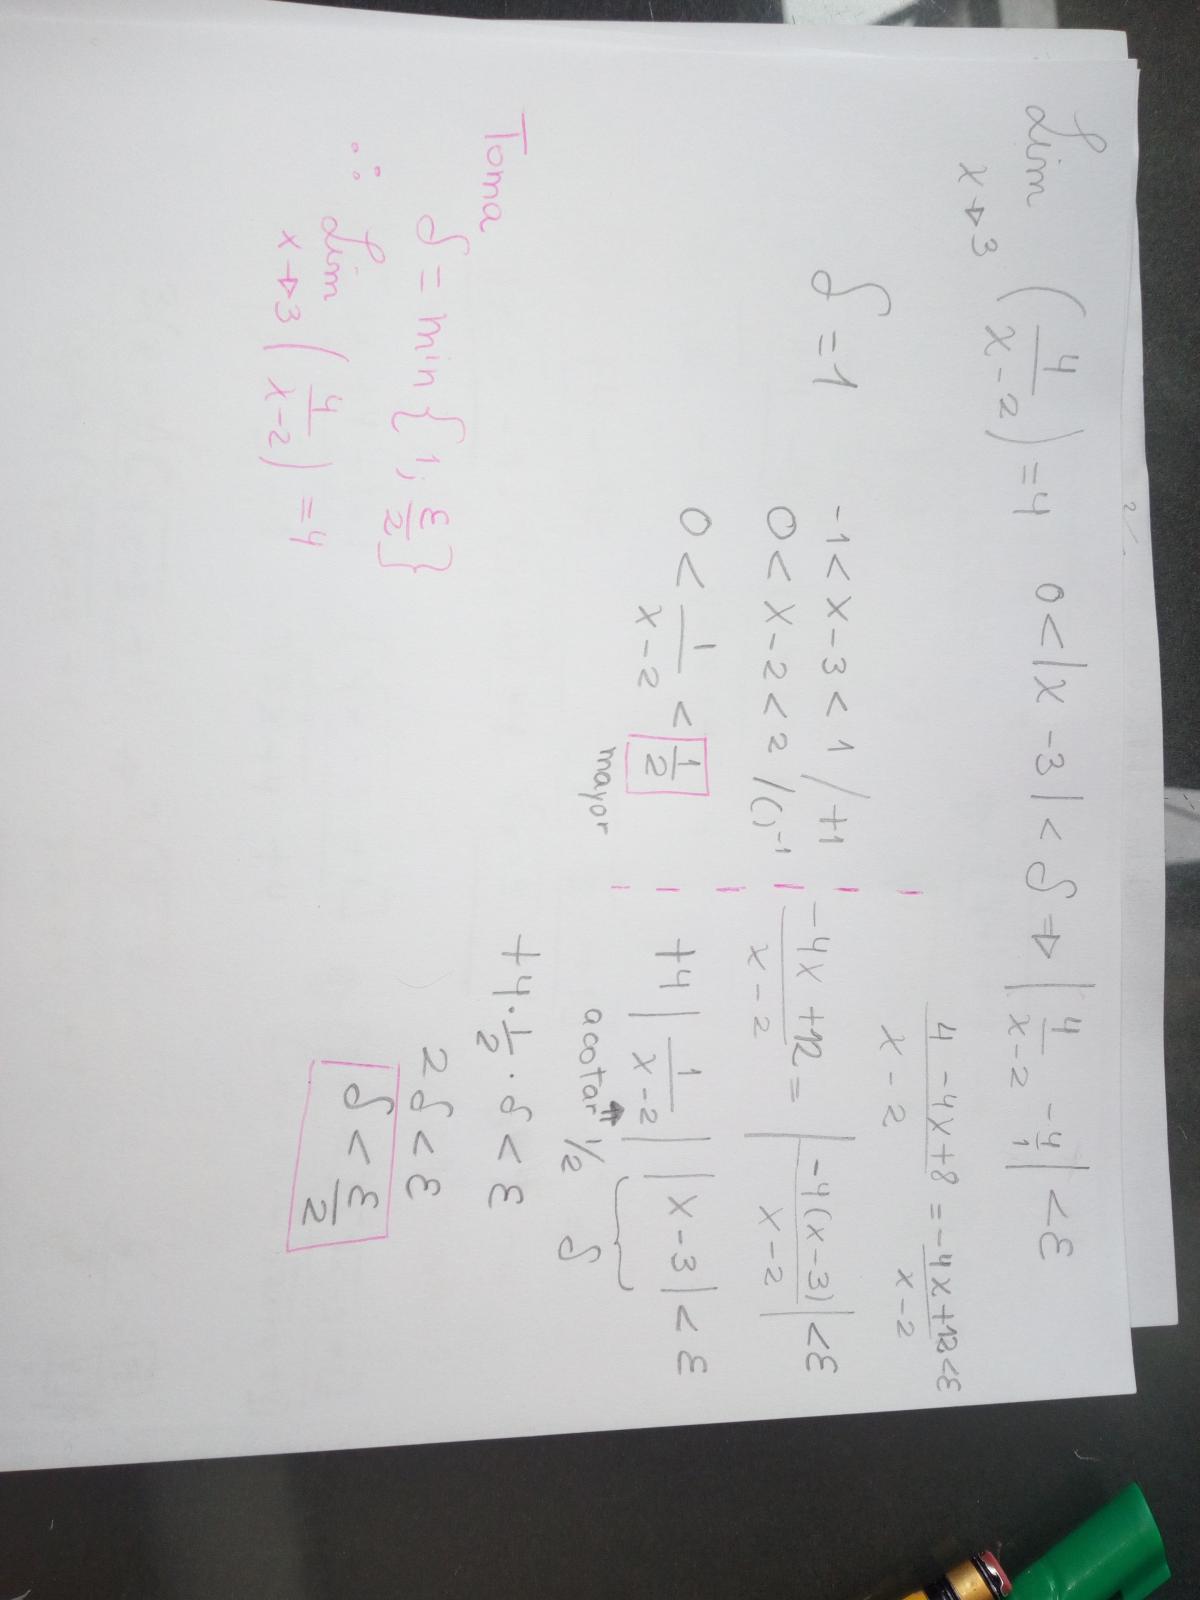 Lim (4/(x-2)) = 4   0 < |x - 3| < δ → |4/(x-2) - 4/1| < ε
x→3
(4 - 4x + 8)/(x - 2) = (-4x + 12)/(x - 2) < ε
δ = 1
-1 < x - 3 < 1 / +1
0 < x - 2 < 2 / ( )⁻¹
0 < 1/(x - 2) < 1/2
mayor
(-4x + 12)/(x - 2) = |-4(x - 3)/(x - 2)| < ε
+4 |1/(x-2)| |x - 3| < ε
acotar 1/2   δ
+4 · 1/2 · δ < ε
2δ < ε
δ < ε/2
Toma
δ = min {1; ε/2}
∴ Lim (4/(x-2)) = 4
x→3